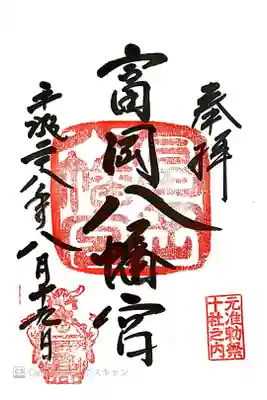 奉拝
元准勅祭
十社之内
富岡八幡宮
平成二八年八月十五日